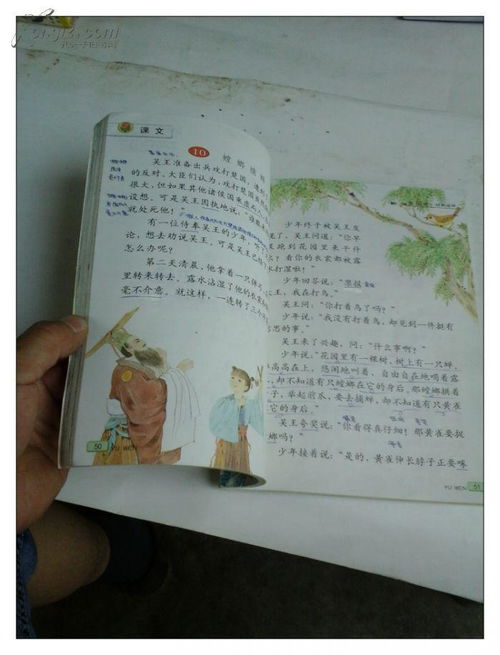 课文
10 螳螂捕
吴王准备出兵攻打楚国，遭到
的反对。大臣们认为，攻打楚国虽
很大，但如果其他诸侯国乘虚
设想。可是吴王固执地说：
就处死他！”
有一位侍奉吴王的少年，听
论，想去劝说吴王，可是吴王已
怎么办呢？
第二天清晨，他拿着一只弹弓
里转来转去。露水沾湿了他的衣裳
毫不介意。就这样，一连转了三个
50
YU WEN
少年终于被吴王发
了。吴王问道：“你早
跑到花园里来干什
？看你的衣裳都被露
水打湿啦！”
少年回答说：“禀报
王，我在打鸟。”
吴王问：“你打着鸟了吗？”
少年说：“我没有打着鸟，却见到一件挺有
思的事。”
吴王来了兴趣，问：“什么事啊？”
少年说：“花园里有一棵树，树上有一只蝉。
高高在上，悠闲地叫着，自由自在地喝着露
，却不知道有只螳螂在它的身后。那螳螂拱着
子，举起前爪，要去捕蝉，却不知道有只黄雀
它的身后。”
吴王夸奖说：“你看得真仔细！那黄雀要捉
螂吗？”
少年接着说：“是的，黄雀伸长脖子正要啄
YU WEN
51